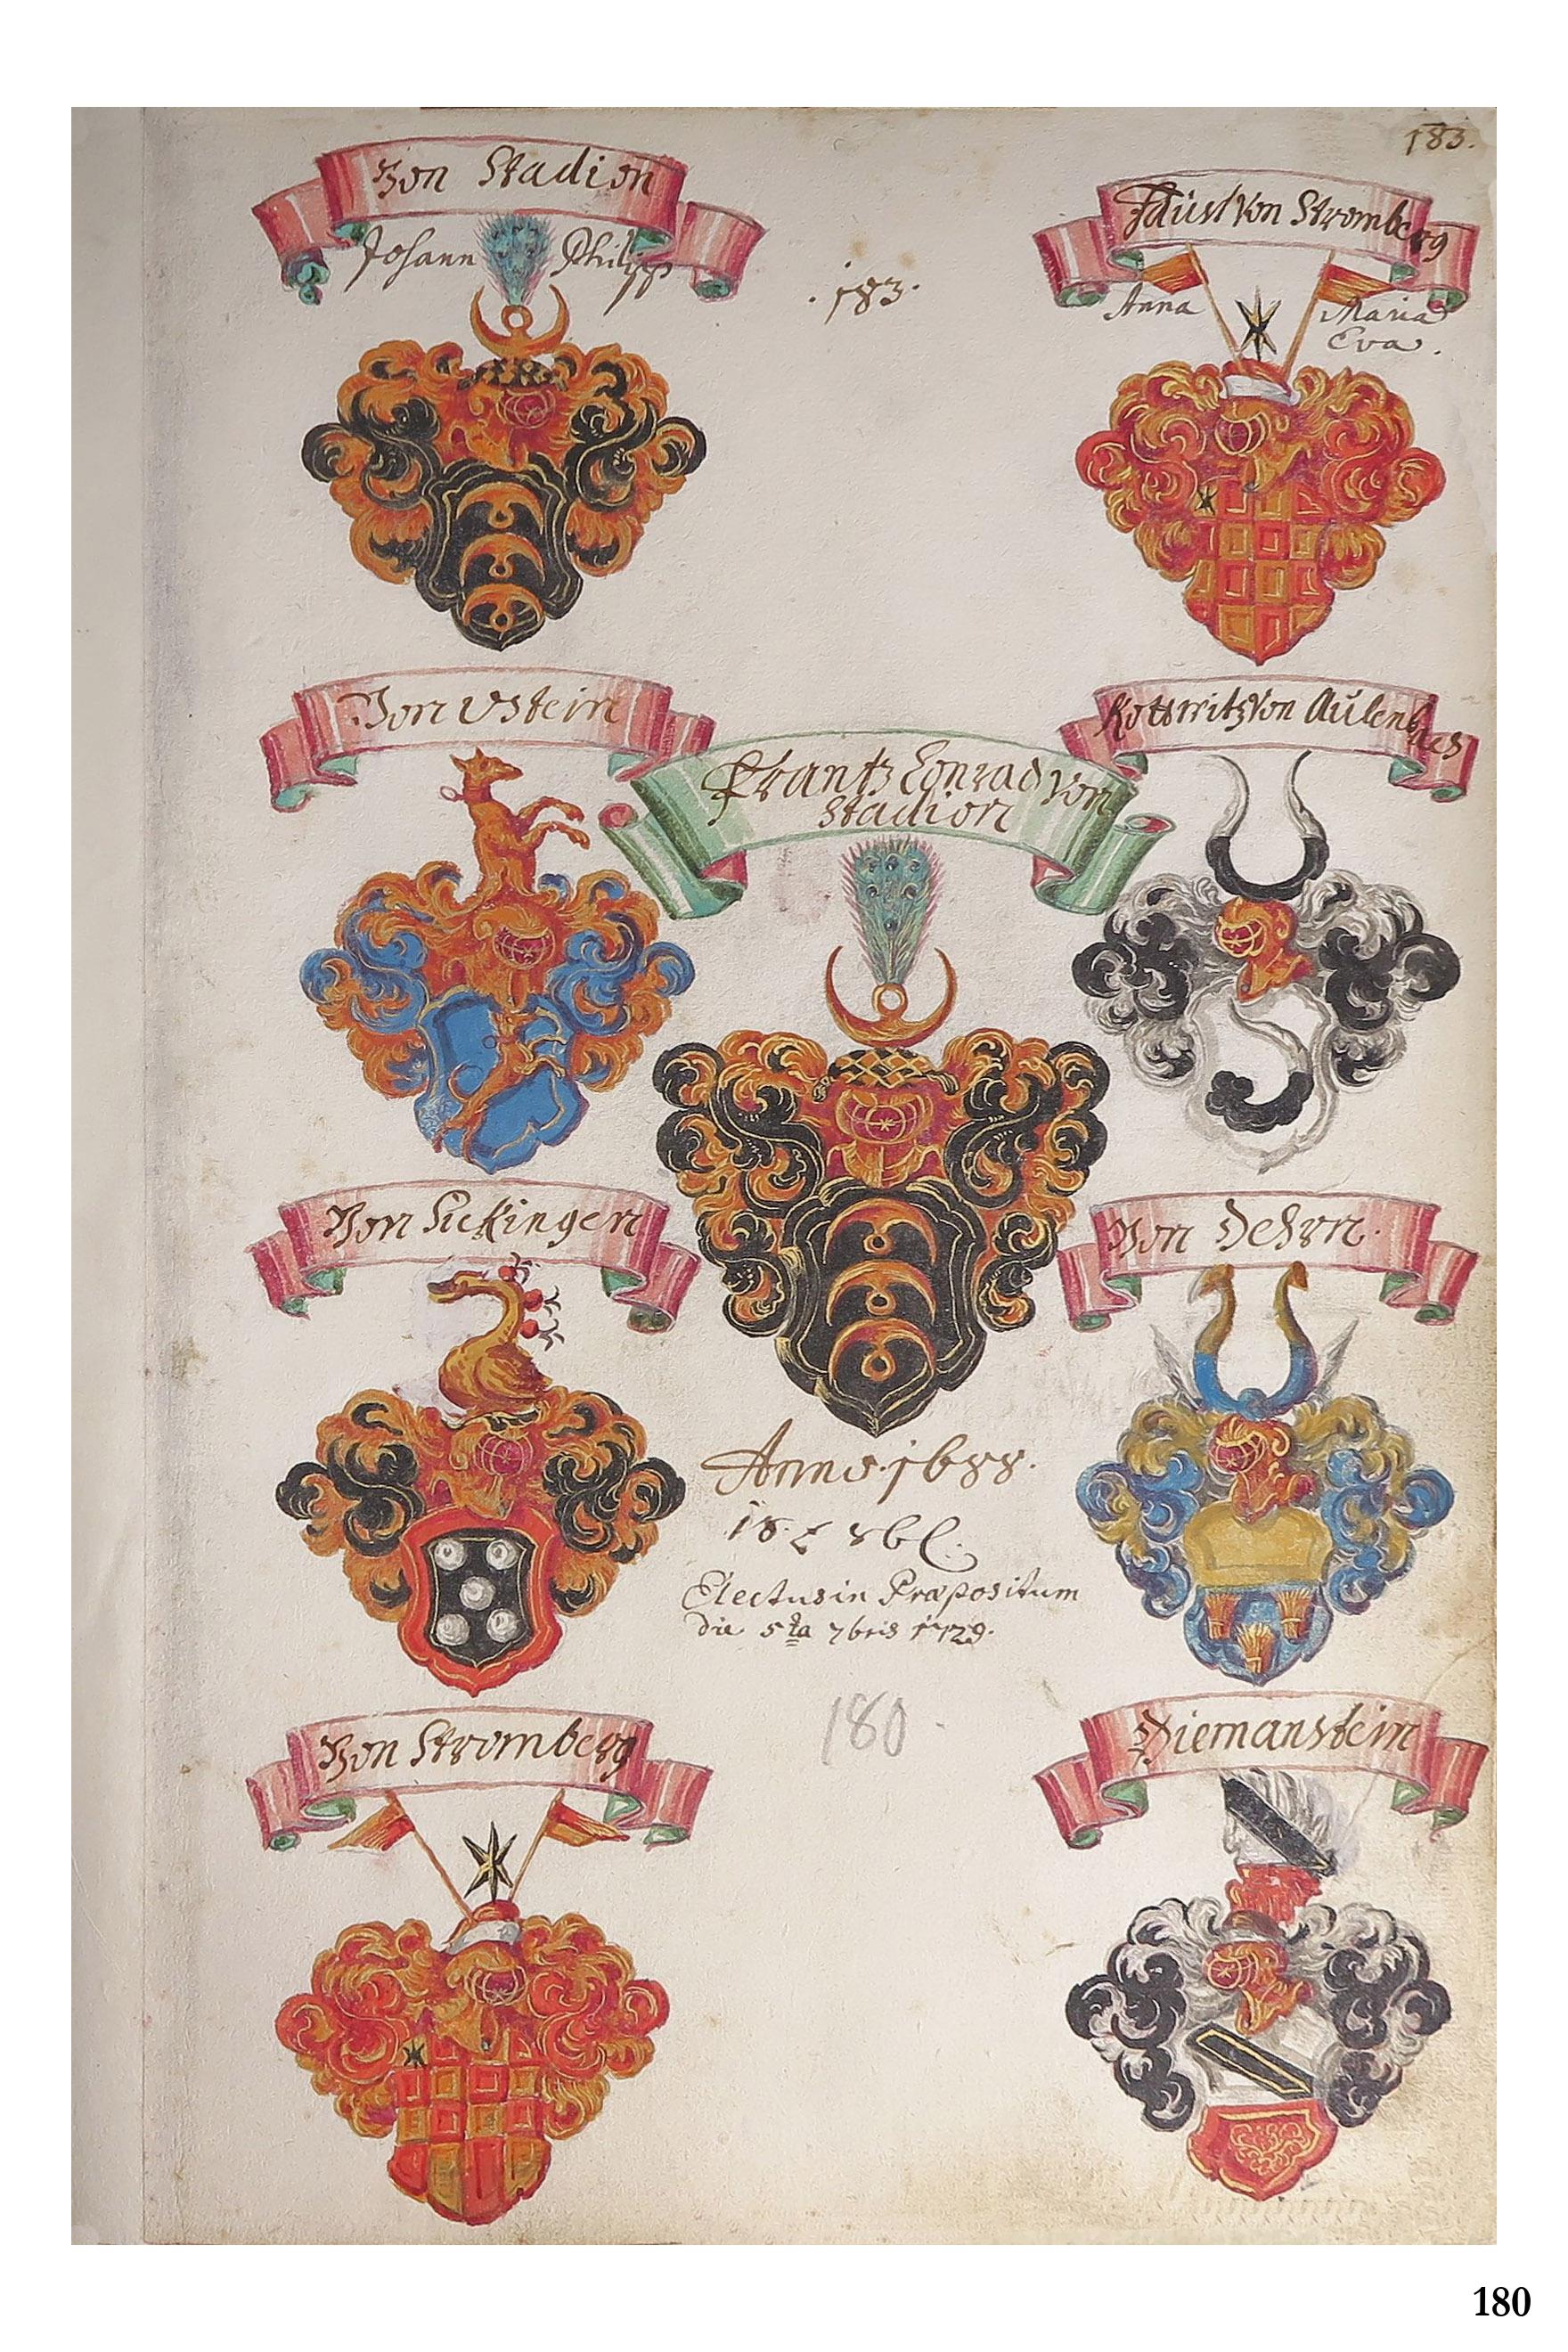 183.
Von Stadion
Johann Philipp
.183.
Faust Von Stromberg
Anna Maria
Eva.
Von Vstein
Kottwitz Von Aulenbach
Frantz Conrad Von
Stadion
Von Sickingen
Von Dehrn.
Anno. 1688.
18.
Electus in Præpositum
die 5ta 7bris 1729.
180
Von Stromberg
Diemanstein
180